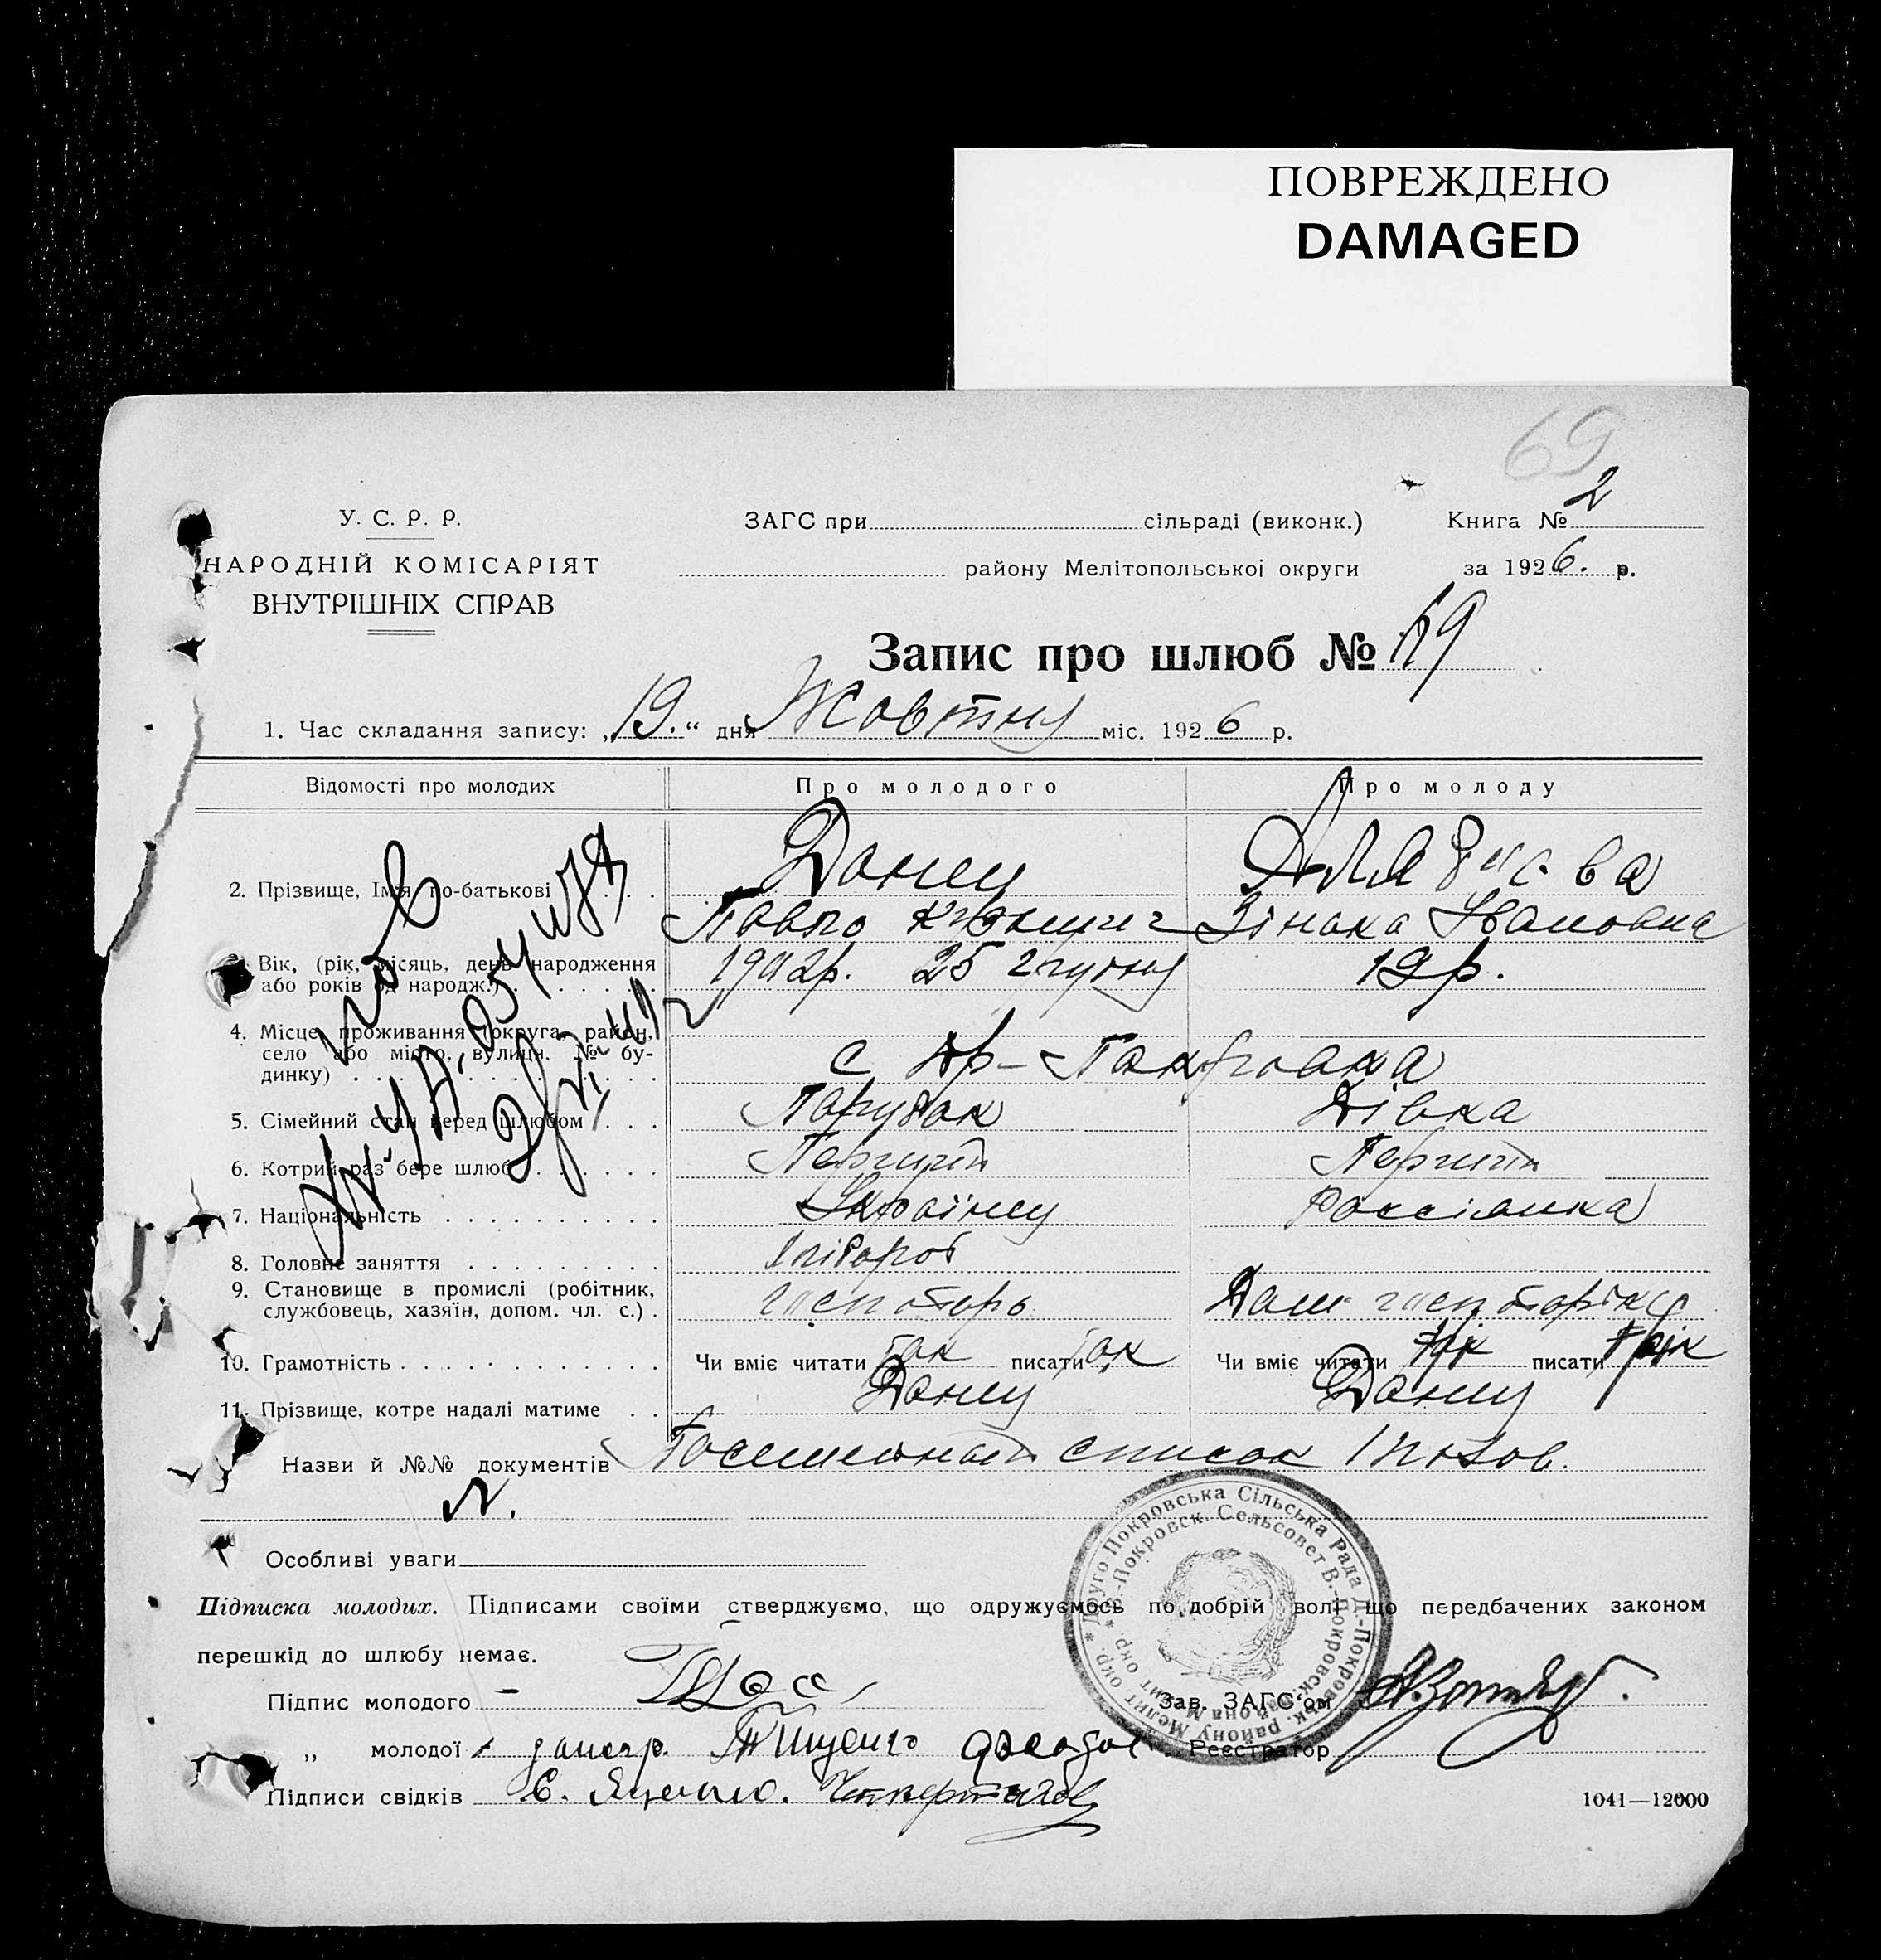 ПОВРЕЖДЕНО
DAMAGED
69
У. С. Р. Р.
НАРОДНІЙ КОМІСАРІЯТ
ВНУТРІШНІХ СПРАВ
ЗАГС при сільраді (виконк.)
району Мелітопольської округи
Книга № 2
за 1926. р.
Запис про шлюб №
1. Час складання запису: „19.“ дня Жовтня міс. 1926 р.
Відомості про молодих Про молодого Про молоду
2. Прізвище, Ім'я по-батькові . . . Донец
Павло Зінака Івановна
3. Вік, (рік, місяць, день народження 1902р. 25 грудня 19р.
або років од народж.) . . . . . . .
4. Місце проживання (округа, район,
село або місто, вулиця, № бу- с Др-Покровка
динку) . . . . . . . . . . . . . .
5. Сімейний стан перед шлюбом . . . Парубок Дівка
6. Котрий раз бере шлюб . . . . . . . Перший Перший
7. Національність . . . . . . . . . . Українец Россіянка
8. Головне заняття . . . . . . . . . Хлібороб
9. Становище в промислі (робітник, господарь Дом господарікy
службовець, хазяїн, допом. чл. с.) .
10. Грамотність . . . . . . . . . . . . . Чи вміє читати так писати так Чи вміє читати так писати так
11. Прізвище, котре надалі матиме . . Донец Донец
Назви й №№ документів Посемейный список
Особливі уваги
Підписка молодих. Підписами своїми стверджуємо, що одружуємось по добрій волі що передбачених законом
перешкід до шлюбу немає.
Підпис молодого Зав. ЗАГС'ом
„ молодої Реєстратор
Підписи свідків Є. Яценко.
1041—12000
* Друго Покровська Сільська Рада Д.-Покровськ. району Мелит окр.
* В.-Покровск. Сельсовет В.-Покровск. района Мелит окр.